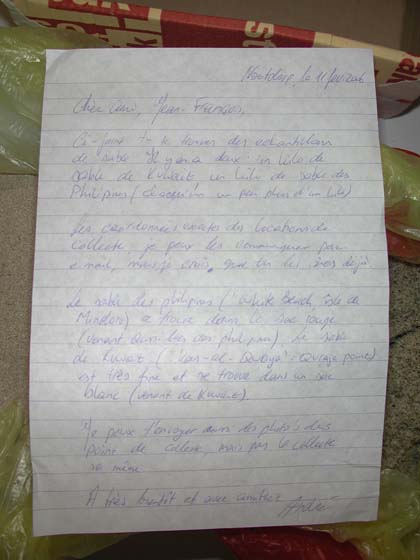 le 11
Cher ami, Jean-François,
Ci-joint tu trouves des echantillons
de sable. Il y en a deux: un kilo de
sable de Kuwait un kilo de sable des
Philipines ( un peu plus d'un kilo)
Les coordonnées exactes des locations de
collecte, je peux les communiquer par
e-mail, mais je crois que tu les déjà
Le sable des philipines ( White Beach, isle de
Mindoro) se trouve dans le sac rouge
(venant des philipines). Le sable
de Kuwait (
est très fine et se trouve dans un sac
blanc (venant de Kuwait).
Je peux t'envoyer aussi des photo's des
point de collecte, mais pas le collecte
sa même.
A très bientôt et avec amitiés
André